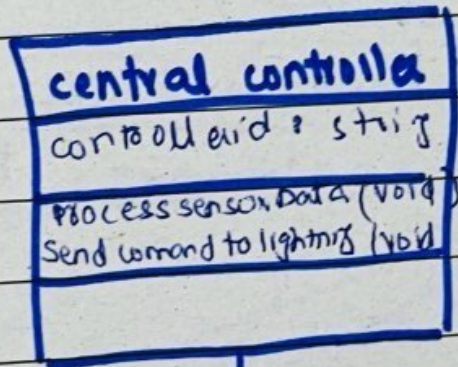 central controller
controllerid : string
processsensorData (void)
send comand to lightning (void